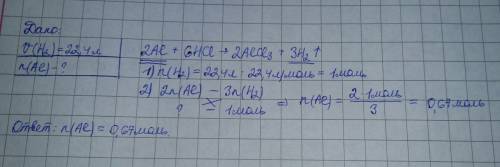 Дано:
V(H₂)=22,4 л
n(Al)-?
2Al + 6HCl → 2AlCl₃ + 3H₂↑
1) n(H₂) = 22,4 л : 22,4 л/моль = 1 моль
2) 2n(Al) – 3n(H₂)
? = 1 моль ⇒ n(Al) = 2·1 моль / 3 = 0,67 моль
Ответ: n(Al) = 0,67 моль.